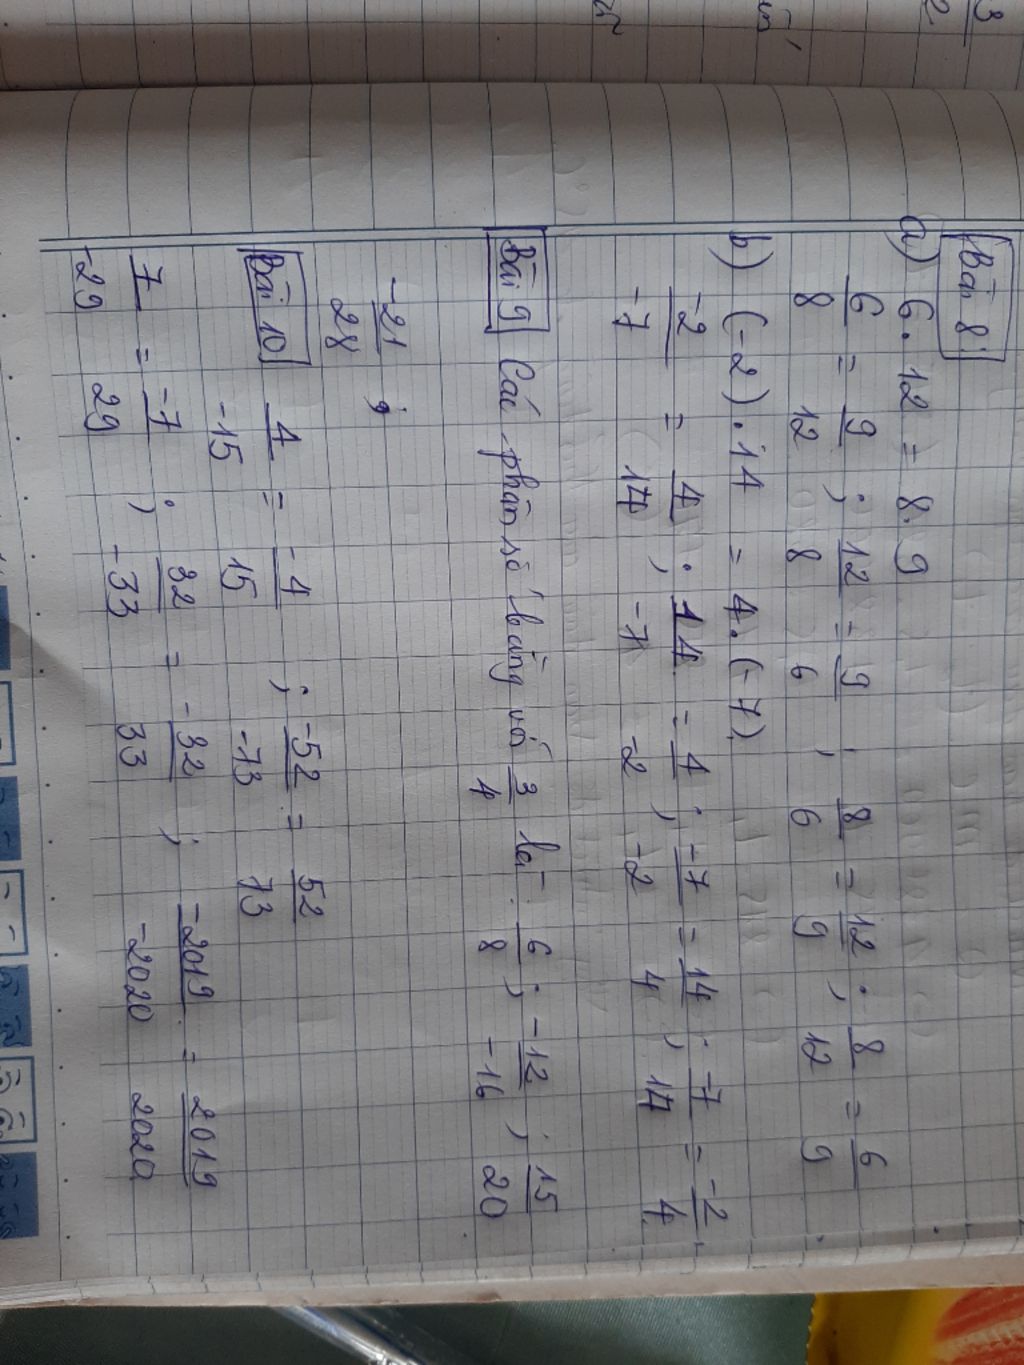 Bài 8
a) 6.12 = 8.9
6/8 = 9/12 ; 12/8 = 9/6 ; 8/6 = 12/9 ; 8/12 = 6/9
b) (-2).14 = 4.(-7)
-2/-7 = 4/14 ; 14/-7 = 4/-2 ; -7/-2 = 14/4 ; -7/14 = -2/4
Bài 9 Các phân số bằng với 3/4 là: 6/8 ; -12/-16 ; 15/20
-21/28 ;
Bài 10 4/-15 = -4/15 ; -52/-73 = 52/73
7/-29 = -7/29 ; 32/-33 = -32/33 ; -2019/-2020 = 2019/2020